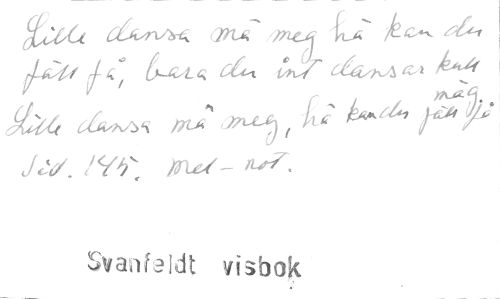 Lille dansa må meg hä kan du
fått få, bara du int dansar kull
mäg.
Lille dansa må meg, hä kan du fått få
Sid. 145. mel-not.
Svanfeldt visbok